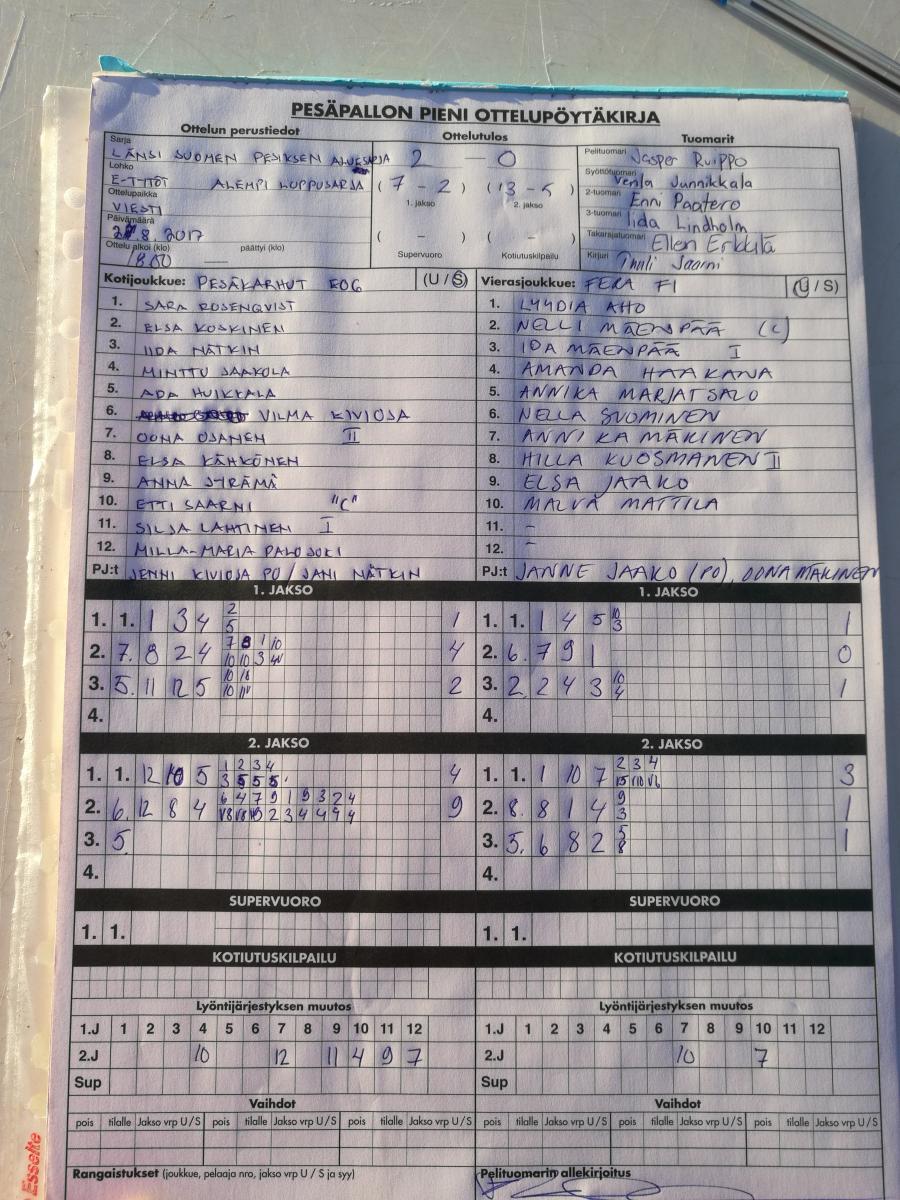 PESÄPALLON PIENI OTTELUPÖYTÄKIRJA
Ottelun perustiedot Ottelutulos Tuomarit
Sarja
LÄNSI SUOMEN PESIKSEN ALUESARJA 2 — 0
Lohko
E-TYTÖT ALEMPI LOPPUSARJA (7 - 2) (13 - 5)
1. jakso 2. jakso
Ottelupaikka
VIESTI
Päivämäärä
27.8.2017 ( - ) ( - )
Ottelu alkoi (klo) päättyi (klo) Supervuoro Kotiutuskilpailu
1800 —
Pelituomari Jasper Ruippo
Syöttötuomari Venla Junnikkala
2-tuomari Enni Paatero
3-tuomari Iida Lindholm
Takarajatuomari Ellen Erkkilä
Kirjuri Saarni
Kotijoukkue: PESÄKARHUT (U / S)
1. SARA ROSENQVIST
2. ELSA KOSKINEN
3. IIDA NÄTKIN
4. MINTTU JAAKOLA
5. ADA HUIKKALA
6. VILMA KIVIOJA
7. OONA OJANEN II
8. ELSA KÄHKÖNEN
9. ANNA JYRÄMÄ
10. ETTI SAARNI "C"
11. SILJA LAHTINEN I
12. MILLA-MARIA PALOJOKI
PJ:t JENNI KIVIOJA PO / JANI NÄTKIN
Vierasjoukkue: FERA F1 (U / S)
1. LYYDIA AHO
2. NELLI MÄENPÄÄ (C)
3. IDA MÄENPÄÄ I
4. AMANDA HAAKANA
5. ANNIKA MARJATSALO
6. NELLA SUOMINEN
7. ANNIKA MÄKINEN
8. HILLA KUOSMANEN II
9. ELSA JAAKO
10. MALVA MATTILA
11. -
12. -
PJ:t JANNE JAAKO (PO), OONA MÄKINEN
1. JAKSO
1. 1. 1 3 4 2 1
5
2. 7. 8 2 4 7 8 1 10 4
10 10 3
3. 5. 11 12 5 2
10
4.
1. JAKSO
1. 1. 1 4 5 10 1
3
2. 6. 7 9 1 0
3. 2. 2 4 3 10 1
4
4.
2. JAKSO
1. 1. 12 10 5 1 2 3 4 4
3 5 5 5
2. 6. 12 8 4 6 4 7 9 1 9 3 2 4 9
2 3 4 4 4 4
3. 5.
4.
2. JAKSO
1. 1. 1 10 7 2 3 4 3
2. 8. 8 1 4 9 1
3
3. 5. 6 8 2 5 1
8
4.
SUPERVUORO
1. 1.
SUPERVUORO
1. 1.
KOTIUTUSKILPAILU
KOTIUTUSKILPAILU
Lyöntijärjestyksen muutos
1.J 1 2 3 4 5 6 7 8 9 10 11 12
2.J 10 12 11 4 9 7
Sup
Lyöntijärjestyksen muutos
1.J 1 2 3 4 5 6 7 8 9 10 11 12
2.J 10 7
Sup
Vaihdot
pois tilalle Jakso vrp U / S pois tilalle Jakso vrp U / S pois tilalle Jakso vrp U / S
Vaihdot
pois tilalle Jakso vrp U / S pois tilalle Jakso vrp U / S pois tilalle Jakso vrp U / S
Rangaistukset (joukkue, pelaaja nro, jakso vrp U / S ja syy)
Pelituomarin allekirjoitus
Esselte